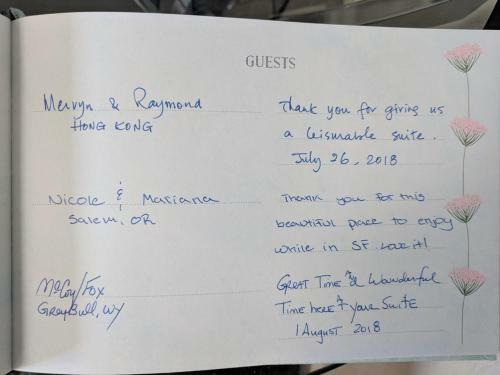 GUESTS
Mervyn & Raymond
HONG KONG
Thank you for giving us
a leismable suite.
July 26, 2018
Nicole & Mariana
Salem, OR
Thank you for this
beautiful place to enjoy
while in SF. Love it!
McCoy/Fox
GreyBull, WY
Great Time & Wonderful
Time here At your Suite
1 August 2018